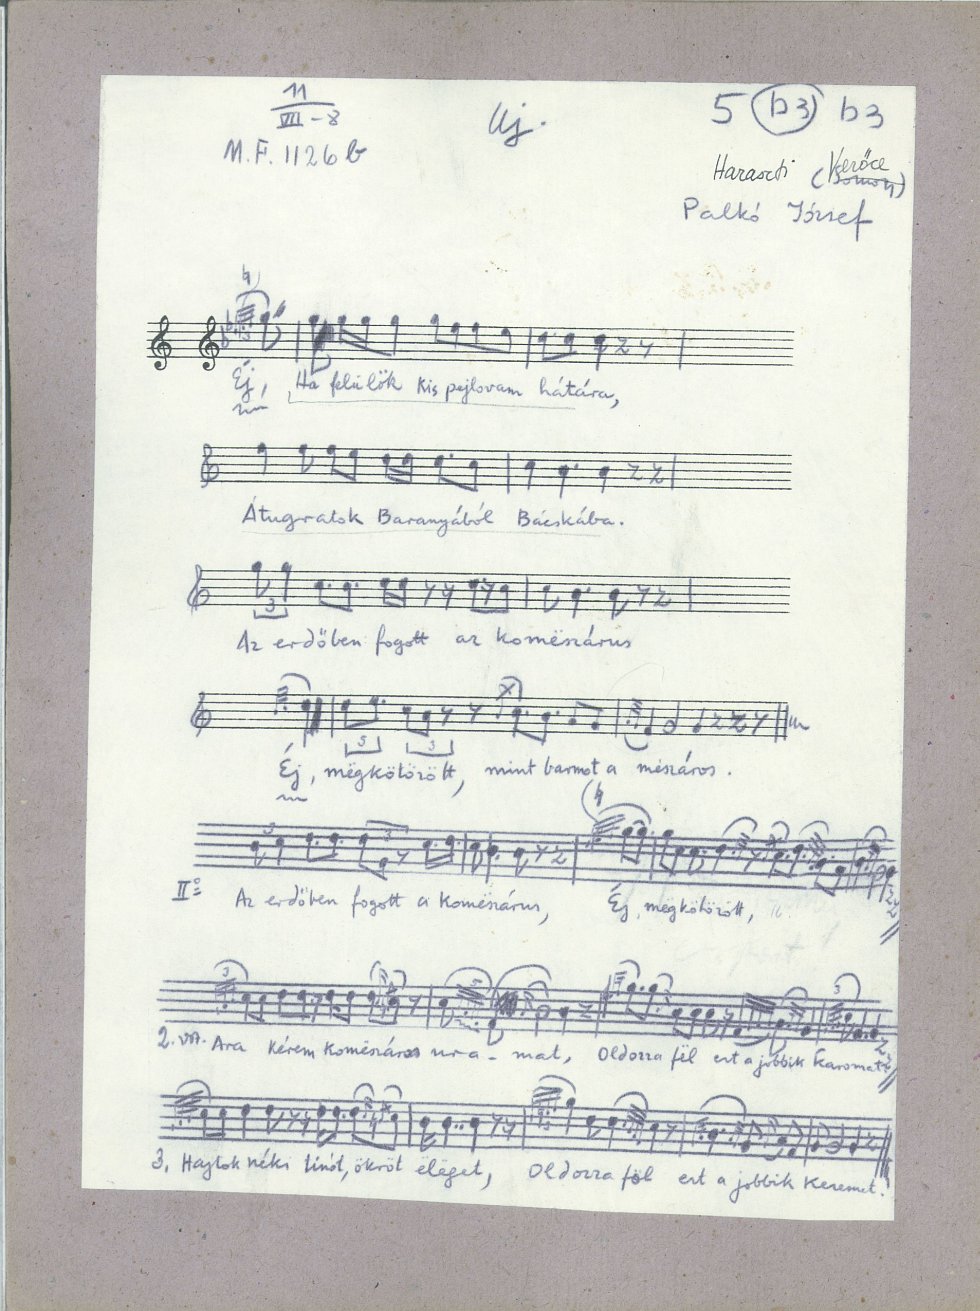 11
VII-8
Uj.
5 b3 b3
M.F. 1126 b
Haraszti (Verőce)
Palkó József
Éj, Ha felülök kis pejlovam hátára,
Átugratok Baranyából Bácskába.
Az erdőben fogott az komëszárus
Éj, mëgkötözött, mint barmot a mészáros.
II° Az erdőben fogott a komëszárus, Éj, mëgkötözött,
2. vsz. Arra kérem komëszáros ur-a-mat, Oldozza föl ezt a jobbik karomat.
3, Hajtok néki tinót, ökröt ëlëget, Oldozza föl ezt a jobbik kezemet.